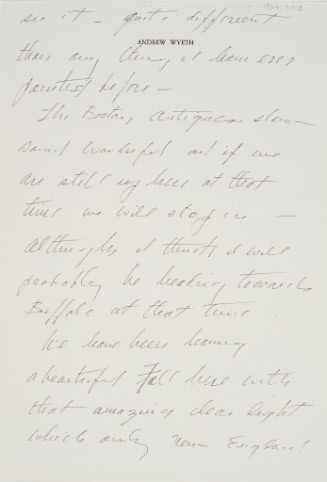 see it - quite different
ANDREW WYETH
than any thing I have ever
painted before -
The Boston Antiques show -
sound wonderful and if we
are still up here at that
time we will stop in -
although I think I will
probably be heading towards
Buffalo at that time.
We have been having
a beautiful Fall here with
that amazing clear light
which only New England